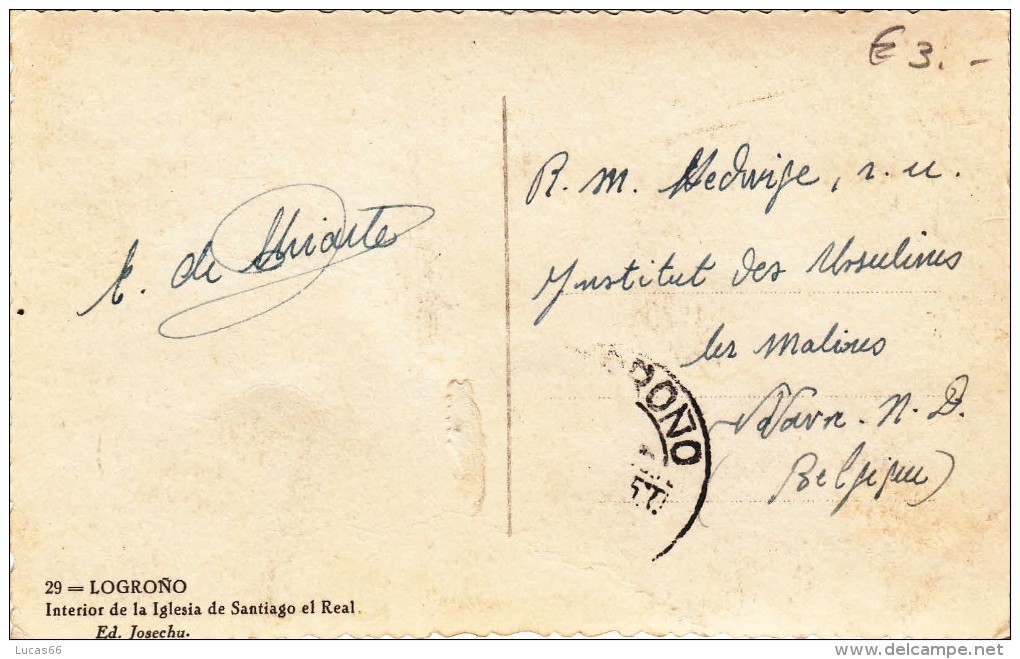 € 3.-
R. M. Hedwige, r. u.
Institut des Ursulines
les Malines
Wavre. N. D.
(Belgique)
E. de Uriarte
ROÑO
29 = LOGROÑO
Interior de la Iglesia de Santiago el Real.
Ed. Josechu.
Lucas66
delcampe.net